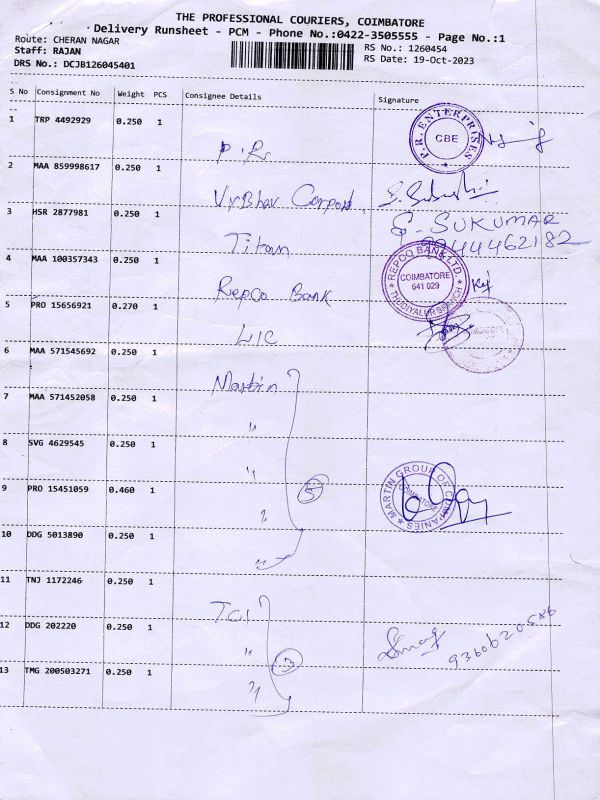 THE PROFESSIONAL COURIERS, COIMBATORE
Delivery Runsheet - PCM - Phone No.:0422-3505555 - Page No.:1
Route: CHERAN NAGAR
RS No.: 1260454
Staff: RAJAN
RS Date: 19-Oct-2023
DRS No.: DCJB126045401
S No Consignment No Weight PCS Consignee Details Signature
1 TRP 4492929 0.250 1 P.R. P.R. ENTERPRISES CBE
2 MAA 859998617 0.250 1
3 HSR 2877981 0.250 1 Titan S. SUKUMAR
9944462182
4 MAA 100357343 0.250 1 Repco Bank REPCO BANK LTD. COIMBATORE 641 029 THUDIYALUR BRANCH
5 PRO 15656921 0.270 1 LIC
6 MAA 571545692 0.250 1 Martin
7 MAA 571452058 0.250 1 "
8 SVG 4629545 0.250 1 "
9 PRO 15451059 0.460 1 " 5 MARTIN GROUP OF COMPANIES COIMBATORE
10 DDG 5013890 0.250 1 "
11 TNJ 1172246 0.250 1
12 DDG 202220 0.250 1 " 3 9360620586
13 TMG 200503271 0.250 1 "